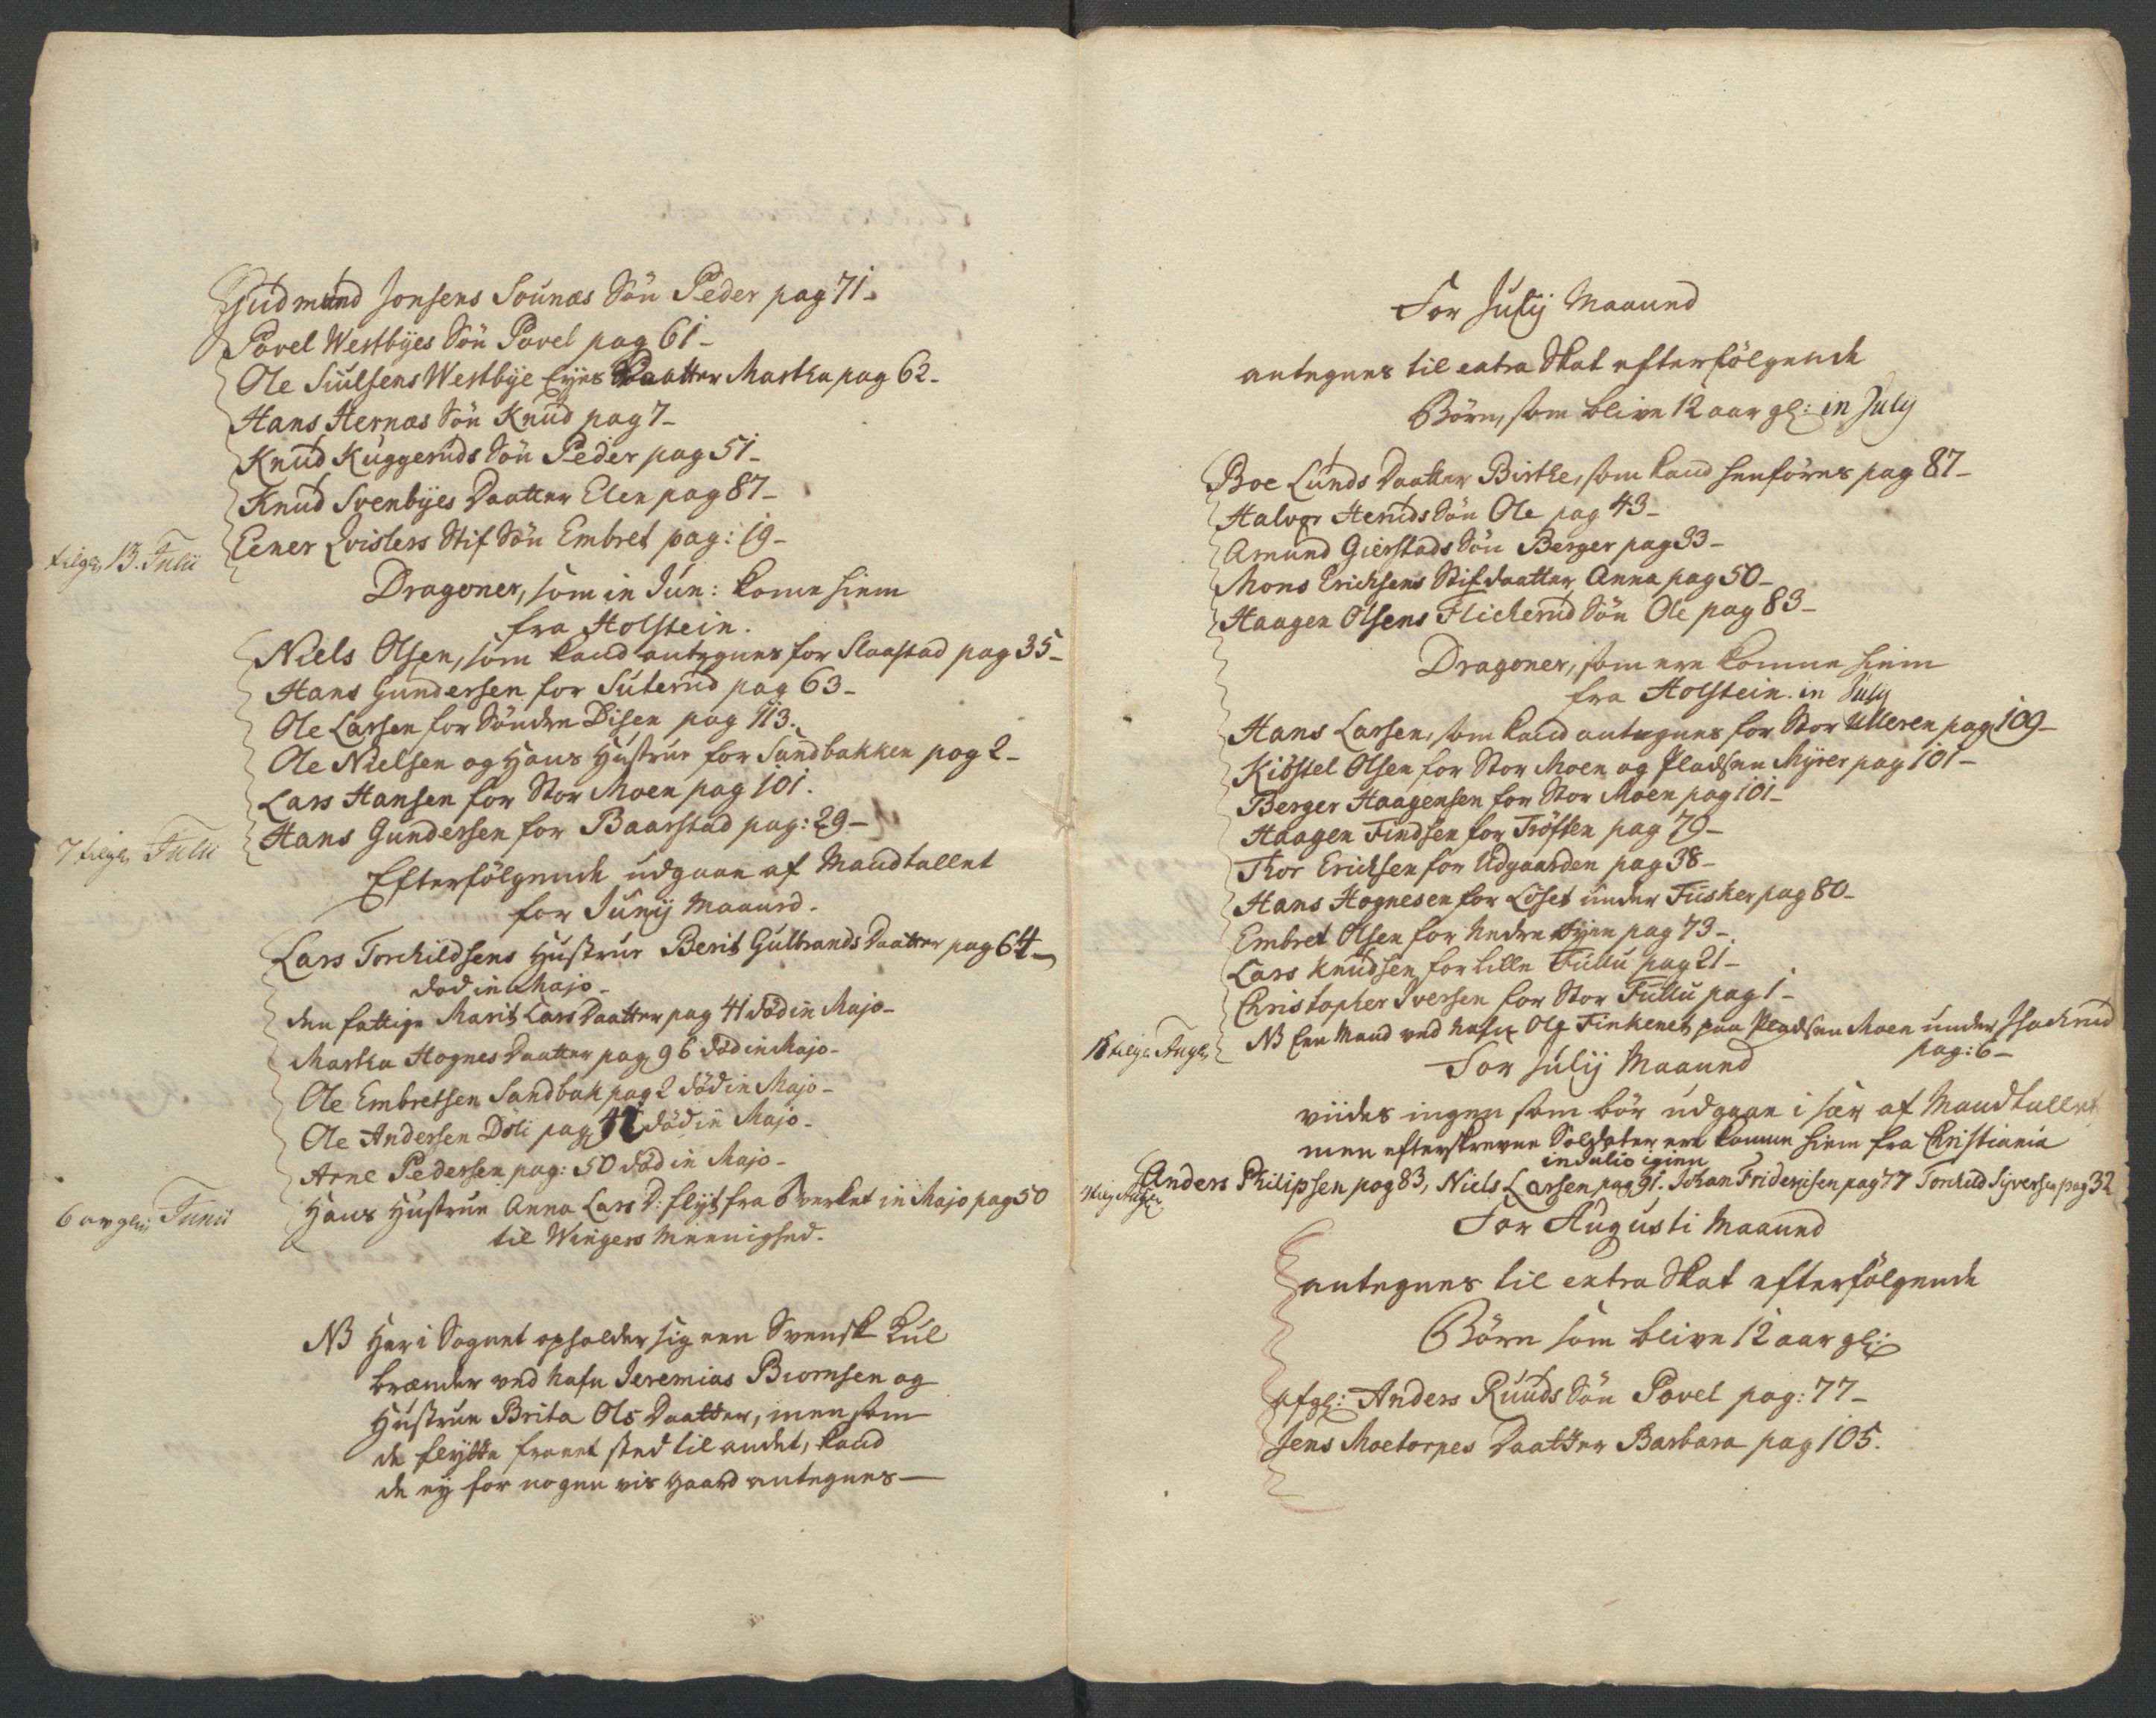 Gudmund Jonsens Sounæs Sön Peder pag 71-
Povel Westbyes Sön Povel pag 61-
Ole Siulsens Westbye Eyes Daatter Martha pag 62-
Hans Hernæs Sön Knud pag 7-
Knud Kuggeruds Sön Peder pag 51-
Knud Svenbyes Daatter Elen pag 87-
Eener Qvislers Stif Sön Embret pag: 19-
13. Julii
Dragoner, som in Jun: kome hiem
fra Holstein.
Niels Olsen, som kand antegnes for Slaastad pag 35-
Hans Gundersen for Suterud pag 63-
Ole Larsen for Söndre Disen pag 113.
Ole Nielsen og Hans Hustrue for Sandbakken pag 2-
Lars Hansen for Stor Moen pag 101.
Hans Gundersen for Baarstad pag: 29-
7 Julii
Efterfölgende udgaae af Mandtallet
for Junij Maaned.
Lars Torchildsens Hustrue Berit Gulbrands Daatter pag 64-
död in Majo-
den fattige Marit Lars Daatter pag 41 död in Majo-
Martha Hognes Daatter pag 96 död in Majo-
Ole Embretsen Sandbak pag 2 död in Majo-
Ole Andersen Döli pag död in Majo-
Arne Pedersen pag: 50 död in Majo-
Hans Hustrue Anna Lars D: flyt fra verket in Majo pag 50
6 Junii
til Wingers Meenighed.
NB Her i Sognet opholder sig een Svensk Kul
brænder ved Nafn Jeremias Biornsen og
Hustrue Brita Ols Daatter, men som
de flytte fra eet sted til andet, kand
de ey for nogen vis Gaard antegnes-
For Julij Maaned
antegnes til extra Skat efterfölgende
Börn, som blive 12 aar gl: in Julij
Boe Lunds Daatter Birthe, som kand henföres pag 87-
Halvor Heruds Sön Ole pag 43-
Amund Gierstads Sön Berger pag 33-
Mons Erichsens Stifdaatter Anna pag 50-
Haagen Olsens Flicherud Sön Ole pag 83-
Dragoner, som ere komne hiem
fra Holstein. in July
Hans Larsen, som kand antegnes for Stor Ulleren pag 109-
Kiöstel Olsen for Stor Moen og Pladsen Myrer pag 101-
Berger Haagensen for Stor Moen pag 101-
Haagen Findsen for Tröften pag 79-
Thor Erichsen for Udgaarden pag 38-
Hans Hognesen for Löset under Fusker pag 80-
Embret Olsen for Nedre Eyen pag 73-
Lars Knudsen for Lille Fullu pag 21-
Christopher Iversen for Stor Fullu pag 1-
NB Een Mand ved Nafn Ole Finkenet paa Pladsen Moen under Isachrud
pag: 6-
For Julij Maaned
viides ingen som bör udgaae i sær af Mandtallet
men efterskrevne Soldater ere komne hiem fra Christiania
in Julio igien
Anders Philipsen pag 83, Niels Larsen pag 91. Johan Friderichsen pag 77 Torchild Syversen pag 32
For Augusti Maaned
antegnes til extra Skat efterfölgende
Börn som blive 12 aar gl:
Anders Ruuds Sön Povel pag: 77-
Jens Moetorpes Daatter Barbara pag 105.